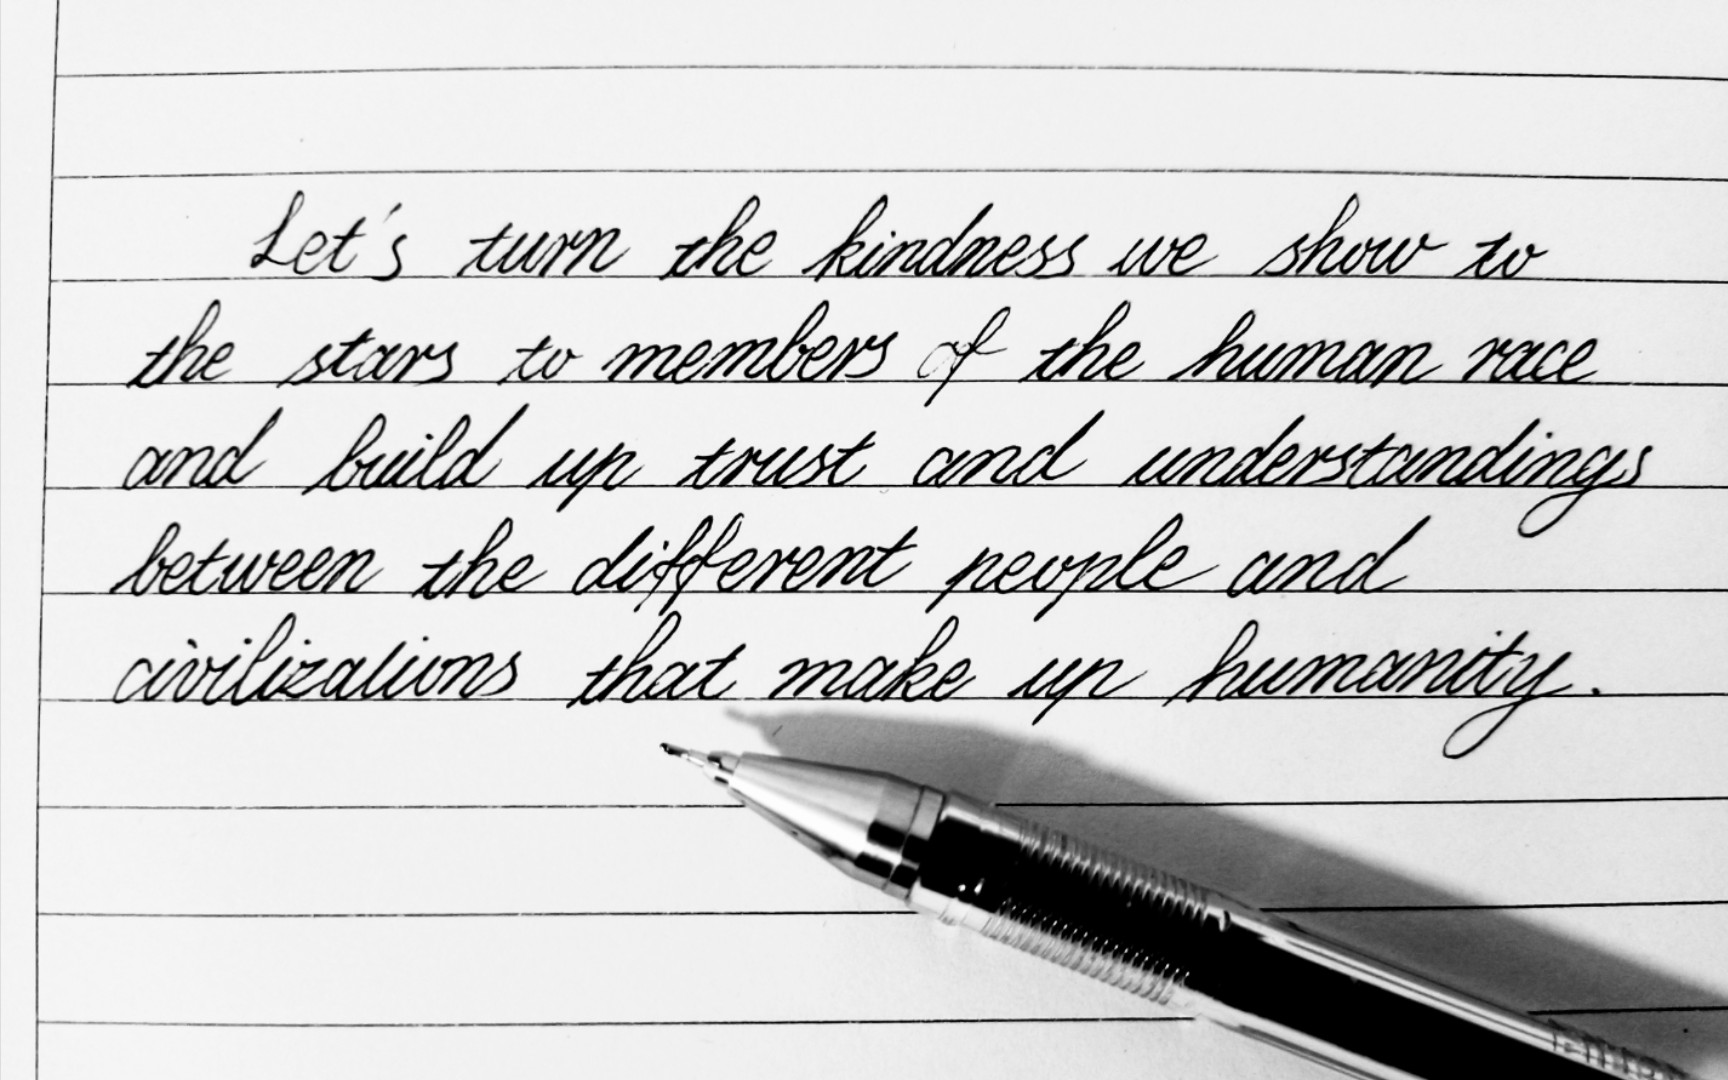 Let's turn the kindness we show to
the stars to members of the human race
and build up trust and understandings
between the different people and
civilizations that make up humanity.